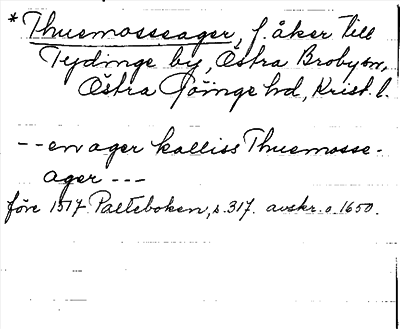 *Thuemosseager, f. åker till
Tydinge by, Östra Broby sn,
Östra Göinge hd, Krist. l.
-- en ager kalliss Thuemosse-
ager ---
före 1517 Palteboken, s. 317. avskr. o. 1650.